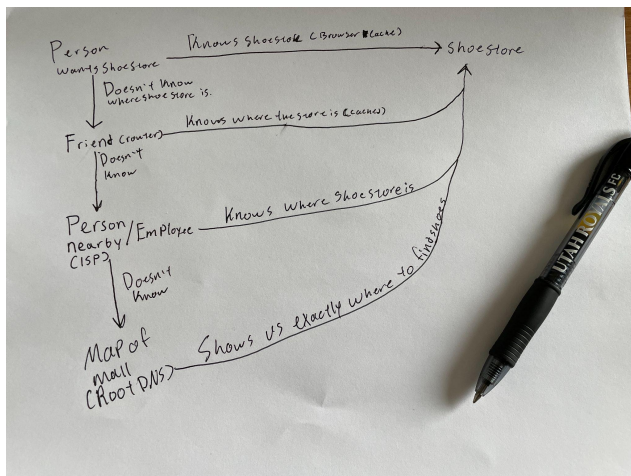 Person
wants shoestore
Knows shoestore (Browser Cache)
Shoestore
Doesn't know
where shoe store is.
Friend (router)
Knows where the store is (cached)
Doesn't
know
Person
nearby / Employee
(ISP)
Knows where shoestore is
Doesn't
know
Map of
mall
(Root DNS)
Shows us exactly where to find shoes
UTAH ROYALS FC